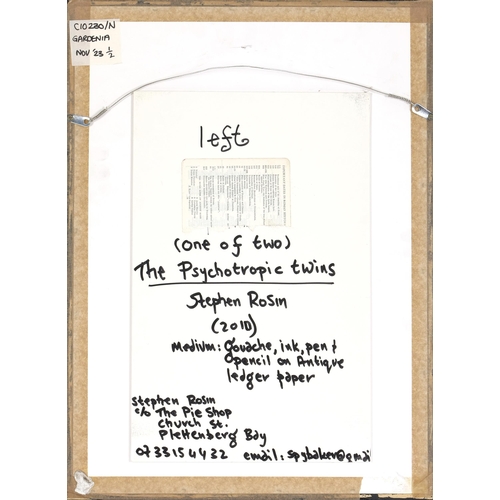 C10280/N
GARDENIA
NOV '23 1/2
left
(one of two)
The Psychotropic twins
Stephen Rosin
(2010)
Medium: gouache, ink, pen +
pencil on Antique
ledger paper
Stephen Rosin
c/o The Pie Shop
Church St.
Plettenberg Bay
0733154432 email: spybaker@gmai